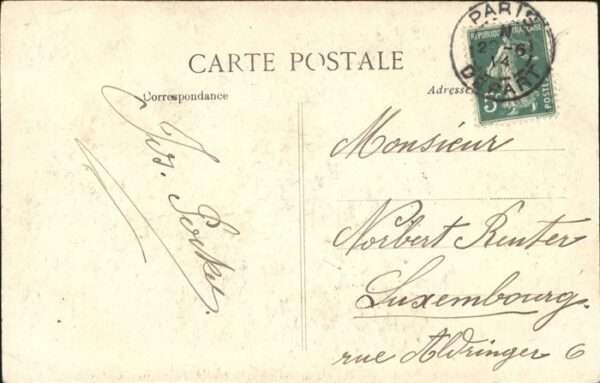 CARTE POSTALE
Correspondance
Adresse
PARIS
14
DEPART
REPUBLIQUE FRANÇAISE
5
POSTES
Monsieur
Norbert Reuter
Luxembourg.
rue Aldringer 6
Jos.